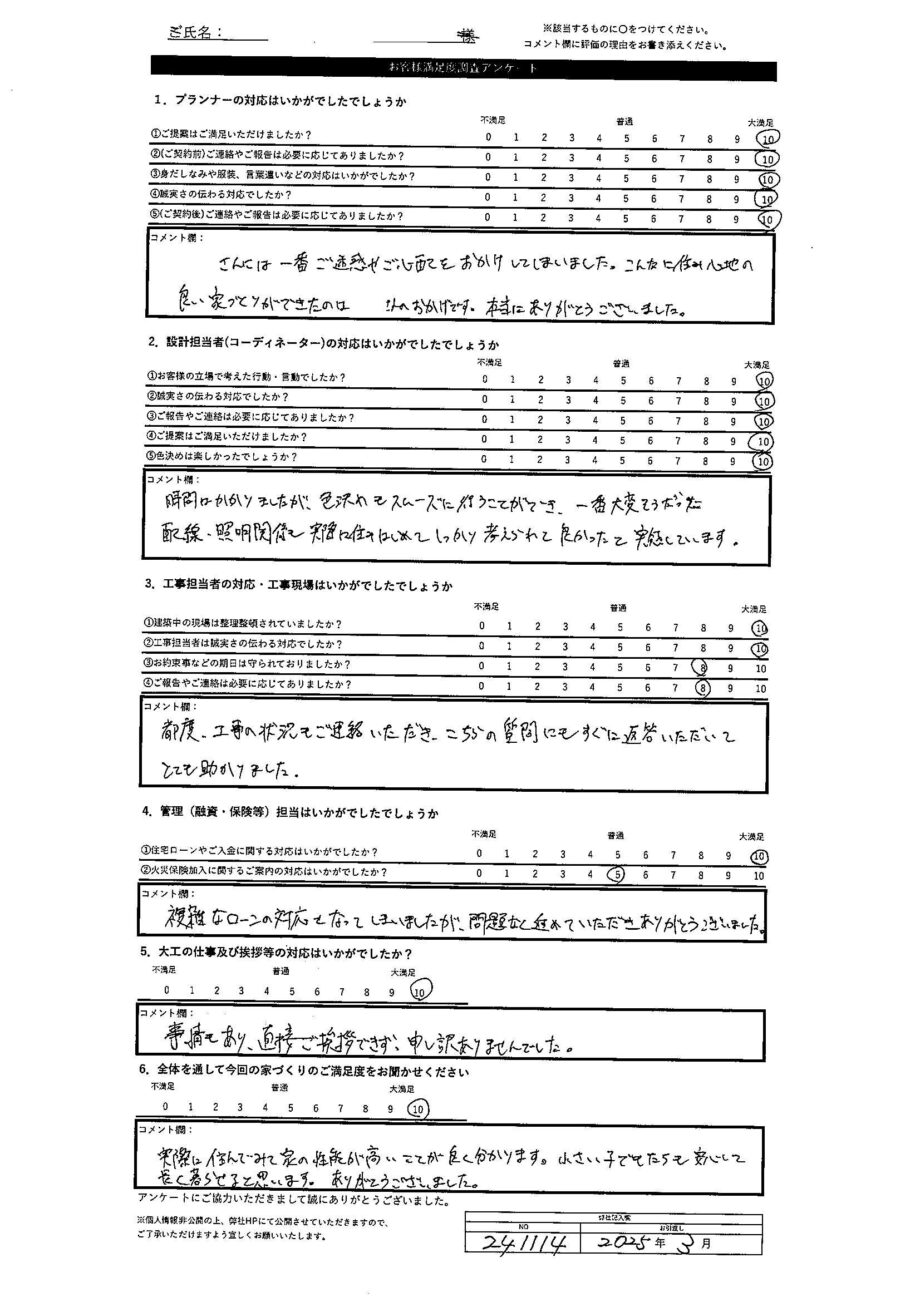 ご氏名： 様
※該当するものに〇をつけてください。
コメント欄に評価の理由をお書き添えください。
お客様満足度調査アンケート
1．プランナーの対応はいかがでしたでしょうか
不満足 普通 大満足
①ご提案はご満足いただけましたか？ 0 1 2 3 4 5 6 7 8 9 10
②(ご契約前)ご連絡やご報告は必要に応じてありましたか？ 0 1 2 3 4 5 6 7 8 9 10
③身だしなみや服装、言葉遣いなどの対応はいかがでしたか？ 0 1 2 3 4 5 6 7 8 9 10
④誠実さの伝わる対応でしたか？ 0 1 2 3 4 5 6 7 8 9 10
⑤(ご契約後)ご連絡やご報告は必要に応じてありましたか？ 0 1 2 3 4 5 6 7 8 9 10
コメント欄：
さんには一番ご迷惑やご心配をおかけしてしまいました。こんなに住み心地の
良い家づくりができたのは さんのおかげです。本当にありがとうございました。
2．設計担当者(コーディネーター)の対応はいかがでしたでしょうか
不満足 普通 大満足
①お客様の立場で考えた行動・言動でしたか？ 0 1 2 3 4 5 6 7 8 9 10
②誠実さの伝わる対応でしたか？ 0 1 2 3 4 5 6 7 8 9 10
③ご報告やご連絡は必要に応じてありましたか？ 0 1 2 3 4 5 6 7 8 9 10
④ご提案はご満足いただけましたか？ 0 1 2 3 4 5 6 7 8 9 10
⑤色決めは楽しかったでしょうか？ 0 1 2 3 4 5 6 7 8 9 10
コメント欄：
時間はかかりましたが、色決めもスムーズに行うことができ、一番大変そうだった
配線、照明関係も実際に住みはじめてしっかり考えられて良かったと実感しています。
3．工事担当者の対応・工事現場はいかがでしたでしょうか
不満足 普通 大満足
①建築中の現場は整理整頓されていましたか？ 0 1 2 3 4 5 6 7 8 9 10
②工事担当者は誠実さの伝わる対応でしたか？ 0 1 2 3 4 5 6 7 8 9 10
③お約束事などの期日は守られておりましたか？ 0 1 2 3 4 5 6 7 8 9 10
④ご報告やご連絡は必要に応じてありましたか？ 0 1 2 3 4 5 6 7 8 9 10
コメント欄：
都度、工事の状況もご連絡いただき、こちらの質問にもすぐに返答いただいて
とても助かりました。
4．管理（融資・保険等）担当はいかがでしたでしょうか
不満足 普通 大満足
①住宅ローンやご入金に関する対応はいかがでしたか？ 0 1 2 3 4 5 6 7 8 9 10
②火災保険加入に関するご案内の対応はいかがでしたか？ 0 1 2 3 4 5 6 7 8 9 10
コメント欄：
複雑なローンの対応となってしまいましたが、問題なく進めていただきありがとうございました。
5．大工の仕事及び挨拶等の対応はいかがでしたか？
不満足 普通 大満足
0 1 2 3 4 5 6 7 8 9 10
コメント欄：
事情もあり、直接ご挨拶できず、申し訳ありませんでした。
6．全体を通して今回の家づくりのご満足度をお聞かせください
不満足 普通 大満足
0 1 2 3 4 5 6 7 8 9 10
コメント欄：
実際に住んでみて家の性能が高いことが良く分かります。小さい子どもたちも安心して
長く暮らせると思います。ありがとうございました。
アンケートにご協力いただきまして誠にありがとうございました。
※個人情報非公開の上、弊社HPにて公開させていただきますので、
ご了承いただけますよう宜しくお願いいたします。
弊社記入欄
NO お引渡し
241114 2025年 3月